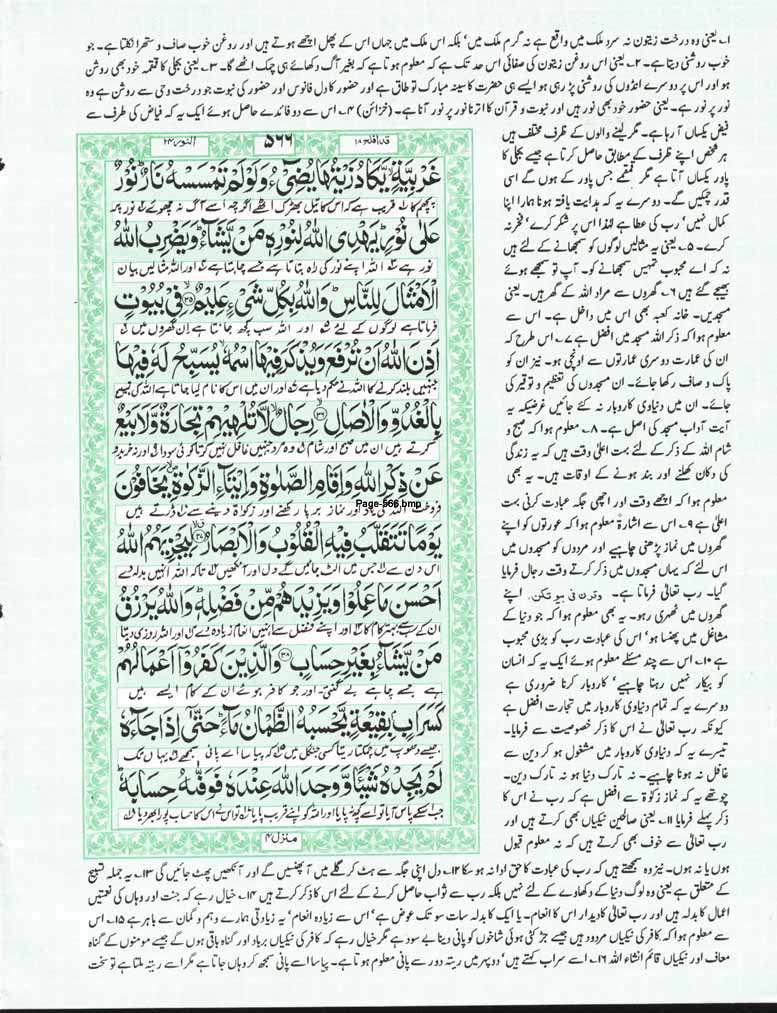 ۱۔ یعنی وہ درخت زیتون نہ سرد ملک میں واقع ہے نہ گرم ملک میں' بلکہ اس ملک میں جہاں اس کے پھل اچھے ہوتے ہیں اور روغن خوب صاف و ستھرا نکلتا ہے۔ جو
خوب روشنی دیتا ہے۔ ۲۔ یعنی اس روغن زیتون کی صفائی اس حد تک ہے کہ معلوم ہوتا ہے کہ بغیر آگ دکھائے ہی چمک اٹھے گا۔ ۳۔ یعنی بجلی کا قمقمہ خود بھی روشن
ہو اور اس پر دوسرے انڈوں کی روشنی پڑ رہی ہو ایسے ہی حضور کا سینہ مبارک تو طاق ہے اور حضور کا دل فانوس اور حضور کی نبوت جو درخت وحی سے روشن ہے وہ
نور پر نور ہے۔ یعنی حضور خود بھی نور ہیں اور نبوت و قرآن کا اترنا نور پر نور آنا ہے۔ (خزائن) ۴۔ اس سے دو فائدے حاصل ہوئے ایک یہ کہ فیاض کی طرف سے
فیض یکساں آ رہا ہے۔ مگر لینے والوں کے ظرف مختلف ہیں
ہر شخص اپنے ظرف کے مطابق حاصل کرتا ہے جیسے بجلی کا
پاور یکساں آتا ہے مگر قمقمے جس پاور کے ہوں گے اسی
قدر چمکیں گے۔ دوسرے یہ کہ ہدایت یافتہ ہونا ہمارا اپنا
کمال نہیں' رب کی عطا ہے لہٰذا اس پر شکر کرے' فخر نہ
کرے۔ ۵۔ یعنی یہ مثالیں لوگوں کو سمجھانے کے لئے ہیں
نہ کہ اے محبوب تمہیں سمجھانے کو۔ آپ تو سمجھے ہوئے
بھیجے گئے ہیں ۶۔ گھروں سے مراد اللہ کے گھر ہیں۔ یعنی
مسجدیں۔ خانہ کعبہ بھی اس میں داخل ہے۔ اس سے
معلوم ہوا کہ ذکر اللہ مسجد میں افضل ہے ۷۔ اس طرح کہ
ان کی عمارت دوسری عمارتوں سے اونچی ہو۔ نیز ان کو
پاک و صاف رکھا جائے۔ ان مسجدوں کی تعظیم و توقیر کی
جائے۔ ان میں دنیاوی کاروبار نہ کئے جائیں غرضیکہ یہ
آیت آداب مسجد کی اصل ہے۔ ۸۔ معلوم ہوا کہ صبح و
شام اللہ کے ذکر کے لئے بہت اعلیٰ وقت ہیں کہ یہ زندگی
کی دکان کھلنے اور بند ہونے کے اوقات ہیں۔ یہ بھی
معلوم ہوا کہ اچھے وقت اور اچھی جگہ عبادت کرنی بہت
اعلیٰ ہے ۹۔ اس سے اشارۃً معلوم ہوا کہ عورتوں کو اپنے
گھروں میں نماز پڑھنی چاہیے اور مردوں کو مسجدوں میں
اس لئے کہ یہاں مسجدوں میں ذکر کرتے وقت رجال فرمایا
گیا۔ رب تعالیٰ فرماتا ہے۔ وقرن فی بیوتکن۔ اپنے
گھروں میں ٹھہری رہو۔ یہ بھی معلوم ہوا کہ جو دنیا کے
مشاغل میں پھنسا ہو' اس کی عبادت رب کو بڑی محبوب
ہے ۱۰۔ اس سے چند مسئلے معلوم ہوئے ایک یہ کہ انسان
کو بیکار نہیں رہنا چاہیے' کاروبار کرنا ضروری ہے
دوسرے یہ کہ تمام دنیاوی کاروبار میں تجارت افضل ہے
کیونکہ رب تعالیٰ نے اس کا ذکر خصوصیت سے فرمایا۔
تیسرے یہ کہ دنیاوی کاروبار میں مشغول ہو کر دین سے
غافل نہ ہونا چاہیے۔ نہ تارک دنیا ہو نہ تارک دین۔
چوتھے یہ کہ نماز زکوٰۃ سے افضل ہے کہ رب نے اس کا
ذکر پہلے فرمایا ۱۱۔ یعنی صالحین نیکیاں بھی کرتے ہیں اور
رب تعالیٰ سے خوف بھی کرتے ہیں کہ نہ معلوم قبول
ہوں یا نہ ہوں۔ نیز وہ سمجھتے ہیں کہ رب کی عبادت کا حق ادا نہ ہو سکا ۱۲۔ دل اپنی جگہ سے ہٹ کر گلے میں آ پھنسیں گے اور آنکھیں پھٹ جائیں گی ۱۳۔ یہ جملہ تسبیح
کے متعلق ہے یعنی وہ لوگ دنیا کے دکھاوے کے لئے نہیں بلکہ رب سے ثواب حاصل کرنے کے لئے اس کا ذکر کرتے ہیں ۱۴۔ خیال رہے کہ جنت اور وہاں کی نعمتیں
اعمال کا بدلہ ہیں اور رب تعالیٰ کا دیدار اس کا انعام۔ یا ایک کا بدلہ سات سو تک عوض ہے' اس سے زیادہ انعام' یہ زیادتی ہمارے وہم و گمان سے باہر ہے ۱۵۔ اس
سے معلوم ہوا کہ کافر کی نیکیاں مردود ہیں جیسے جڑ کٹی ہوئی شاخوں کو پانی دینا بے سود ہے مگر خیال رہے کہ کافر کی نیکیاں برباد اور گناہ باقی ہوں گے جیسے مومنوں کے گناہ
معاف اور نیکیاں قائم انشاء اللہ ۱۶۔ اسے سراب کہتے ہیں' دوپہر میں ریتہ دور سے پانی معلوم ہوتا ہے۔ پیاسا اسے پانی سمجھ کر وہاں جاتا ہے مگر اسے ریتہ ملتا ہے تو سخت
قد افلح ۱۸
۵۶۶
النور ۲۴
غَرْبِيَّةٍ يَّكَادُ زَيْتُهَا يُضِيْٓءُ وَلَوْ لَمْ تَمْسَسْهُ نَارٌ نُوْرٌ
پچھم کا قریب ہے کہ اس کا تیل بھڑک اٹھے اگرچہ اسے آگ نہ چھوئے نور پر
عَلٰى نُوْرٍ يَهْدِى اللّٰهُ لِنُوْرِهٖ مَنْ يَّشَآءُ وَيَضْرِبُ اللّٰهُ
نور ہے اللہ اپنے نور کی راہ بتاتا ہے جسے چاہتا ہے اور اللہ مثالیں بیان
الْاَمْثَالَ لِلنَّاسِ وَاللّٰهُ بِكُلِّ شَىْءٍ عَلِيْمٌ ۳۵ فِىْ بُيُوْتٍ
فرماتا ہے لوگوں کے لئے اور اللہ سب کچھ جانتا ہے ان گھروں میں
اَذِنَ اللّٰهُ اَنْ تُرْفَعَ وَيُذْكَرَ فِيْهَا اسْمُهٗ يُسَبِّحُ لَهٗ فِيْهَا
جنہیں بلند کرنے کا اللہ نے حکم دیا ہے اور ان میں اس کا نام لیا جاتا ہے اللہ کی تسبیح
بِالْغُدُوِّ وَالْاٰصَالِ ۳۶ رِجَالٌ لَّا تُلْهِيْهِمْ تِجَارَةٌ وَّلَا بَيْعٌ
کرتے ہیں ان میں صبح اور شام وہ مرد جنہیں غافل نہیں کرتا کوئی سودا اور نہ خرید و
عَنْ ذِكْرِ اللّٰهِ وَاِقَامِ الصَّلٰوةِ وَاِيْتَآءِ الزَّكٰوةِ يَخَافُوْنَ
فروخت اللہ کی یاد اور نماز برپا رکھنے اور زکوٰۃ دینے سے ڈرتے ہیں
Page-566.bmp
يَوْمًا تَتَقَلَّبُ فِيْهِ الْقُلُوْبُ وَالْاَبْصَارُ ۳۷ لِيَجْزِيَهُمُ اللّٰهُ
اس دن سے جس میں الٹ جائیں گے دل اور آنکھیں تاکہ اللہ انہیں بدلہ دے
اَحْسَنَ مَا عَمِلُوْا وَيَزِيْدَهُمْ مِّنْ فَضْلِهٖ وَاللّٰهُ يَرْزُقُ
ان کے سب سے بہتر کام کا اور اپنے فضل سے انہیں انعام زیادہ دے اور اللہ روزی دیتا
مَنْ يَّشَآءُ بِغَيْرِ حِسَابٍ ۳۸ وَالَّذِيْنَ كَفَرُوْٓا اَعْمَالُهُمْ
ہے جسے چاہے بے گنتی۔ اور جو کافر ہوئے ان کے کام ایسے ہیں
كَسَرَابٍۭ بِقِيْعَةٍ يَّحْسَبُهُ الظَّمْاٰنُ مَآءً حَتّٰٓى اِذَا جَآءَهٗ
جیسے دھوپ میں چمکتا ریتا کسی جنگل میں کہ پیاسا اسے پانی سمجھے یہاں تک
لَمْ يَجِدْهُ شَيْـًٔا وَّوَجَدَ اللّٰهَ عِنْدَهٗ فَوَفّٰىهُ حِسَابَهٗ
جب اسکے پاس آیا تو اسے کچھ نہ پایا اور اللہ کو اپنے قریب پایا تو اس نے اس کا حساب پورا بھر دیا
منزل ۴